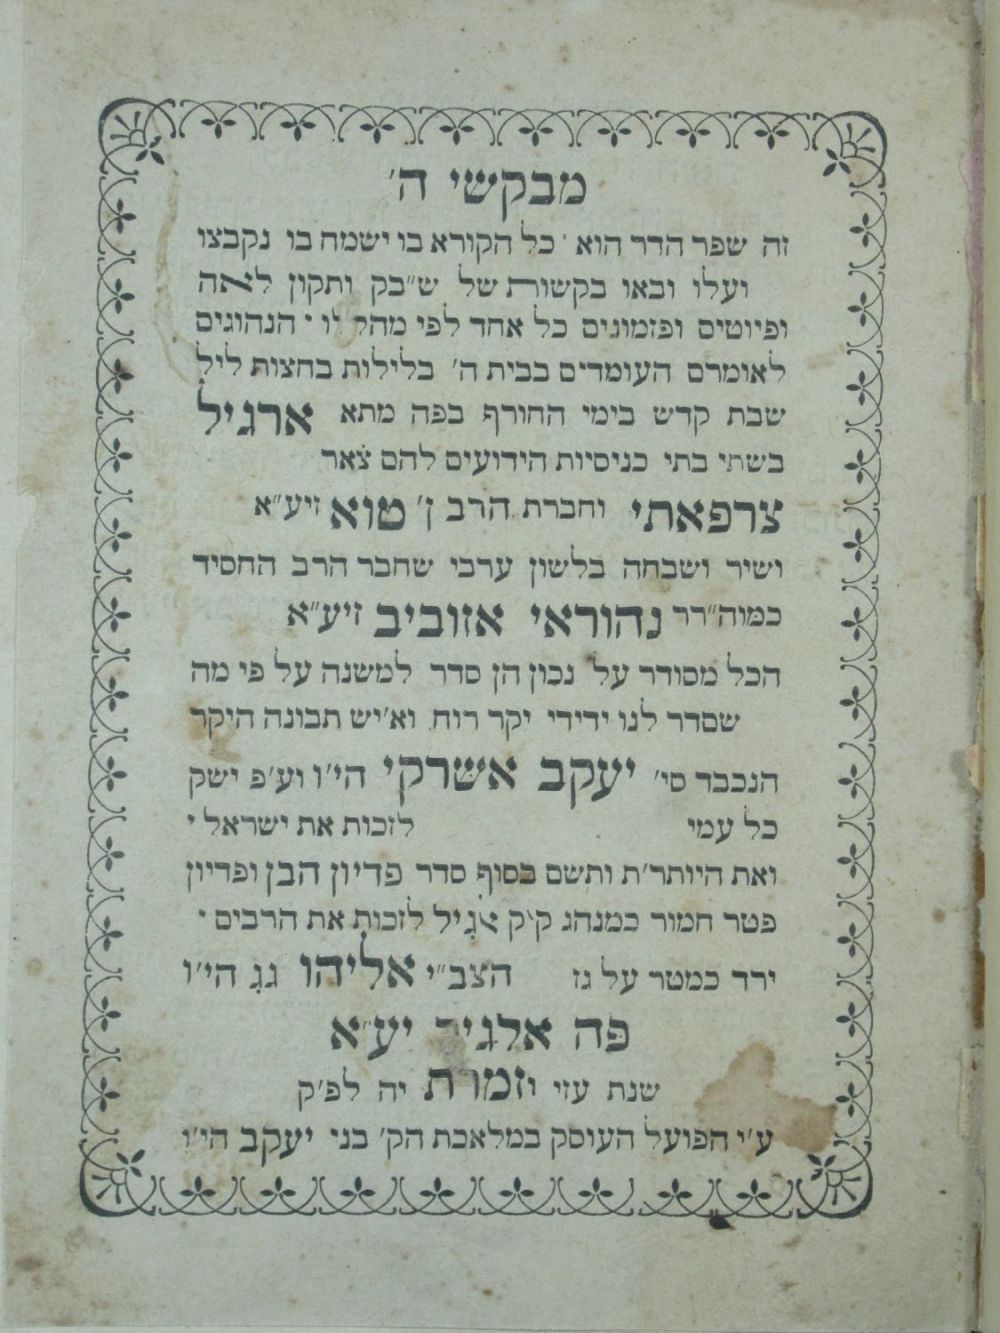 מבקשי ה׳
זה שפר הדר הוא · כל הקורא בו ישמח בו נקבצו
ועלו ובאו בקשות של ש״בק ותקון לאה
ופיוטים ופזמונים כל אחד לפי · הנהוגים
לאומרם העומדים בבית ה׳ בלילות בחצות ליל
שבת קדש בימי החורף בפה מתא ארגיל
בשתי בתי כניסיות הידועים להם צאר
צרפאתי וחברת הרב ן׳ טוא זיע״א
ושיר ושבחה בלשון ערבי שחבר הרב החסיד
כמוה״רר נהוראי אזוביב זיע״א
הכל מסודר על נכון הן סדר למשנה על פי מה
שסדר לנו ידידי יקר רוח וא׳יש תבונה היקר
הנכבד סי׳ יעקב אשרקי הי׳ו וע׳פ ישק
כל עמי לזכות את ישראל ·
ואת היותר׳ת ותשם בסוף סדר פדיון הבן ופדיון
פטר חמור כמנהג ק׳ק לזכות את הרבים ·
ירד כמטר על גז הצב״י אליהו גג הי׳ו
פה יע״א
שנת עזי וזמרת יה לפ׳ק
ע׳י הפועל העוסק במלאכת הק׳ בני יעקב הי׳ו